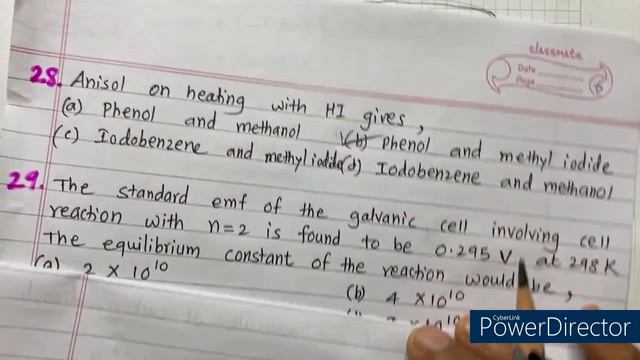 classmate
Date
Page
6
28. Anisol on heating with HI gives,
(a) Phenol and methanol (b) Phenol and methyl iodide
(c) Iodobenzene and methyl iodide (d) Iodobenzene and methanol
29. The standard emf of the galvanic cell involving cell
reaction with n=2 is found to be 0.295 V at 298 K
The equilibrium constant of the reaction would be,
(a) 2 × 10¹⁰
(b) 4 × 10¹⁰
CyberLink
PowerDirector